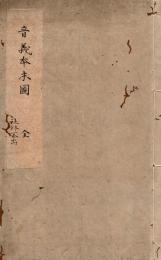 音義夲末圖
全